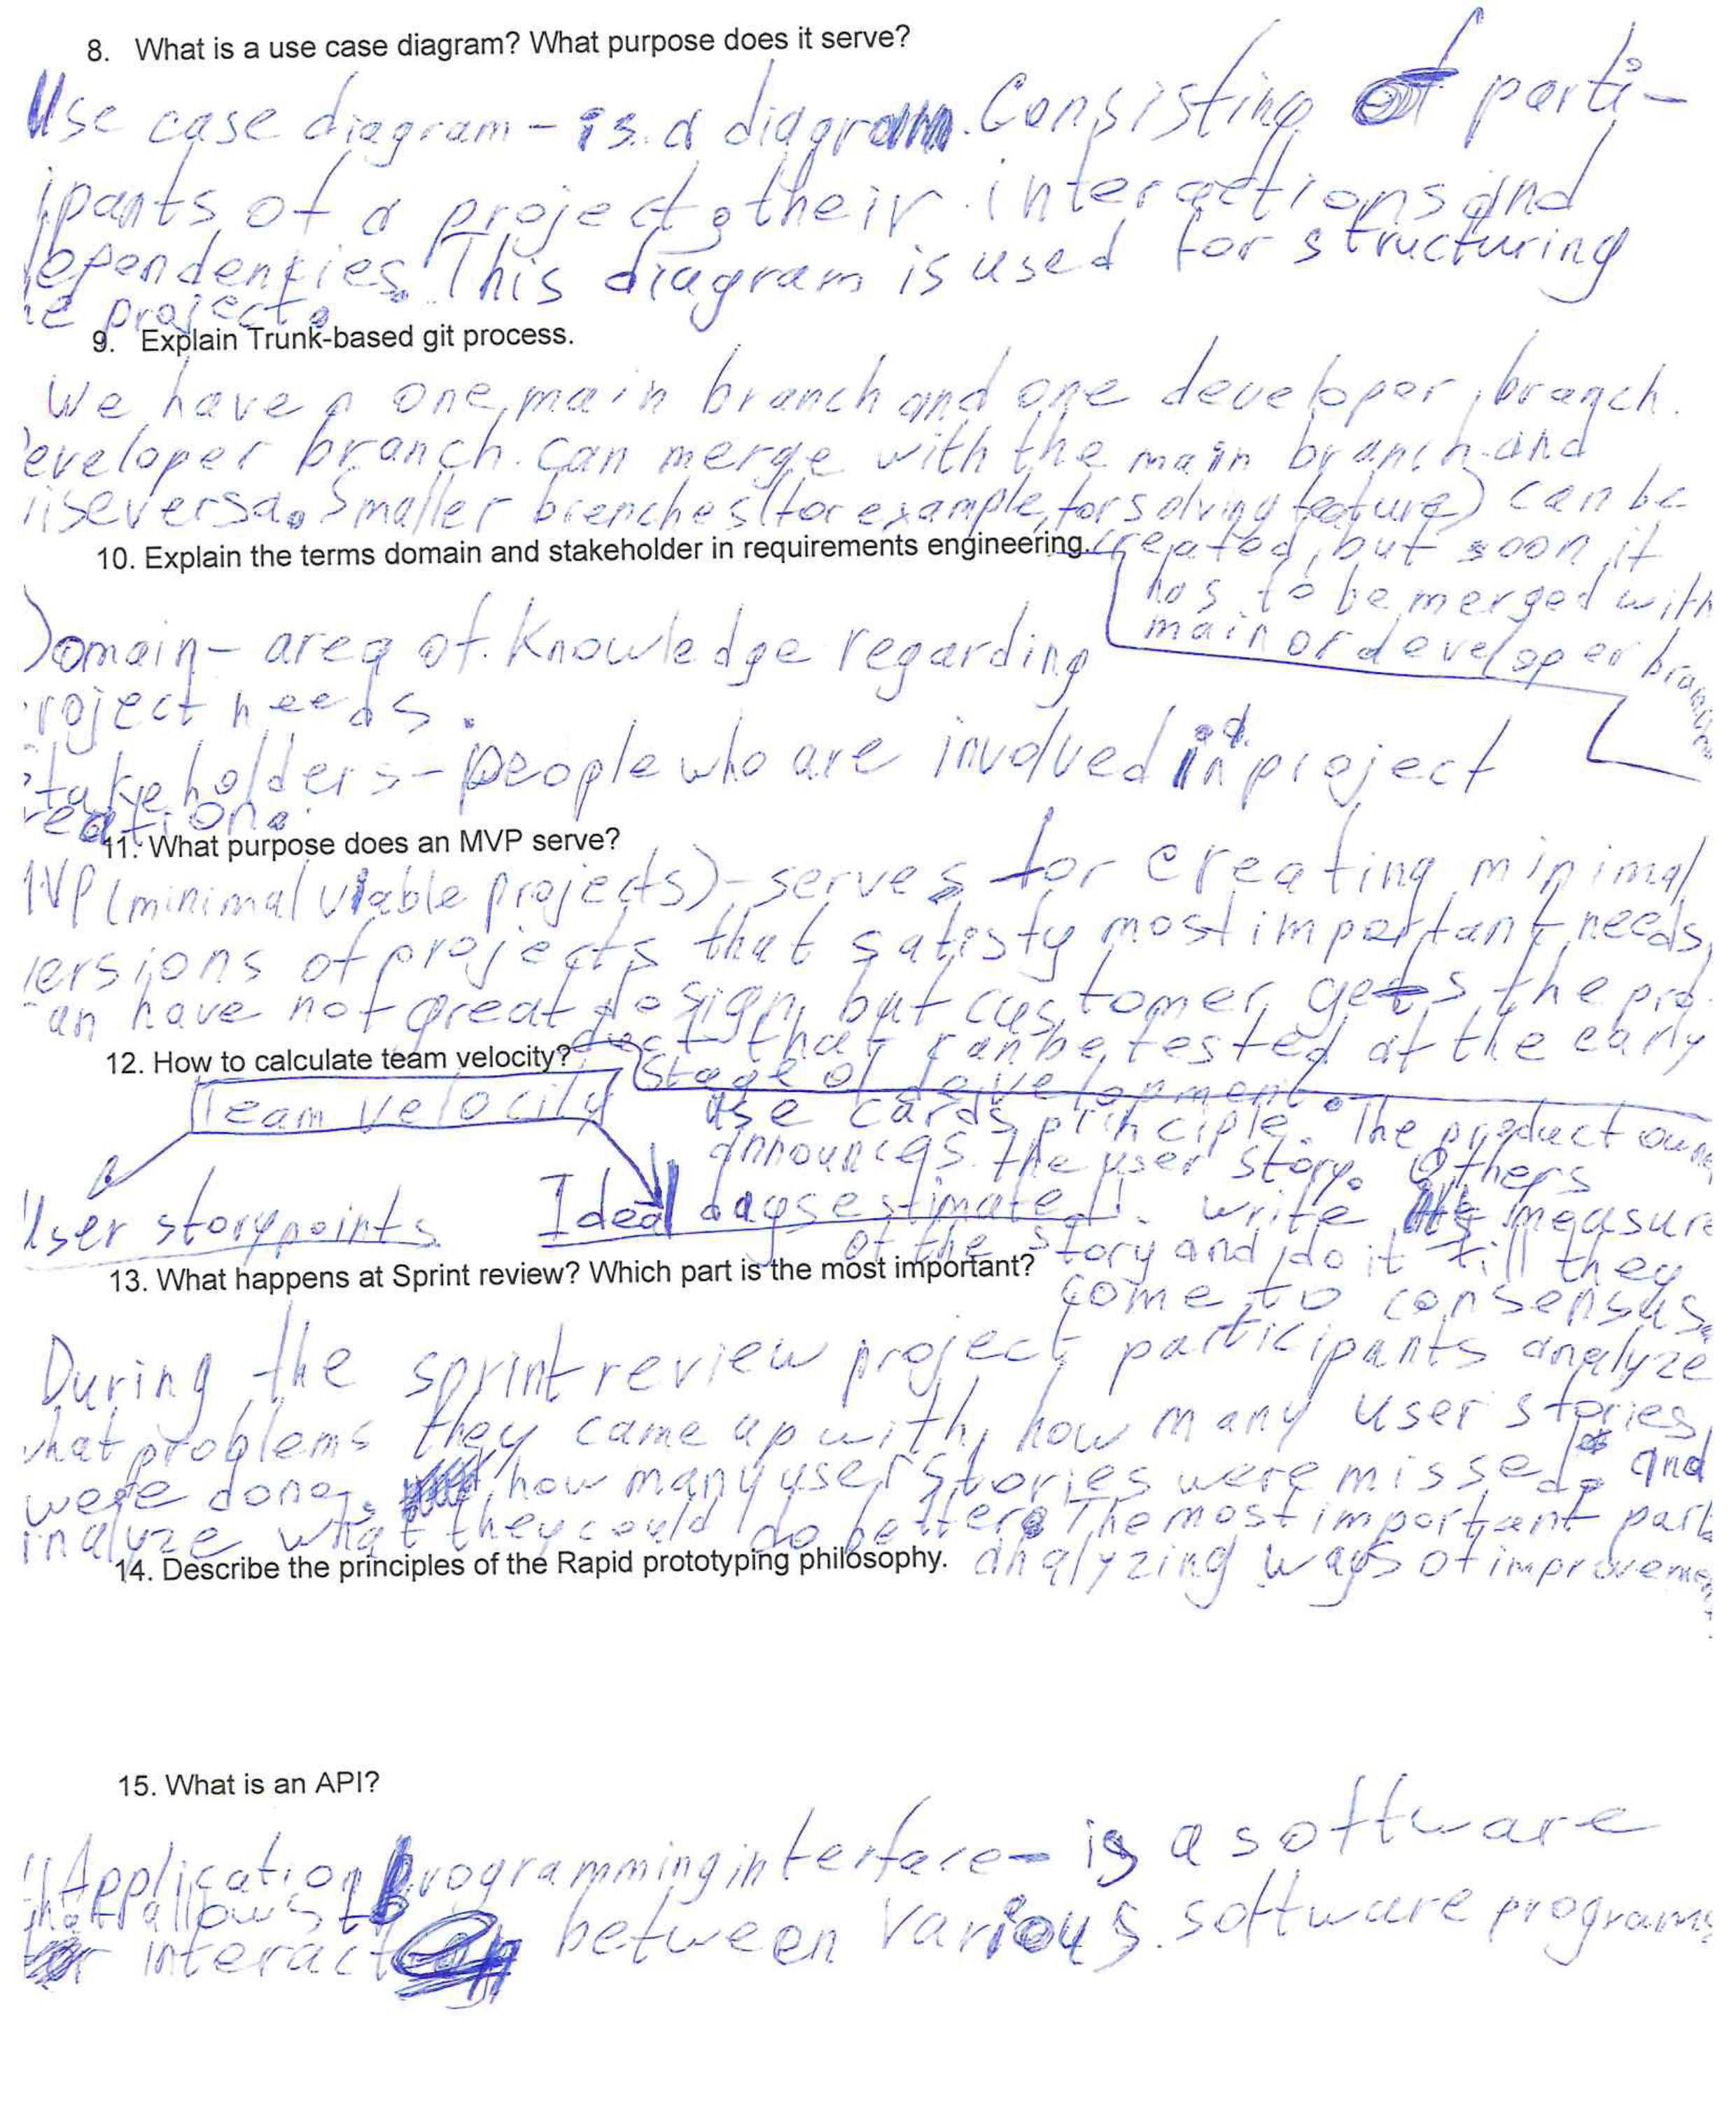 8. What is a use case diagram? What purpose does it serve?
Use case diagram - is a diagram. Consisting of parti-
ipants of a project, their interactions and
ependencies. This diagram is used for structuring
e project.
9. Explain Trunk-based git process.
We have a one main branch and one developer branch.
eveloper branch can merge with the main branch and
iseversa. Smaller brenches (for example, for solving feature) can be
created, but soon it
has to be merged with
main or developer branch
10. Explain the terms domain and stakeholder in requirements engineering.
Domain - area of knowledge regarding
roject needs.
stakeholders - people who are involved in a project
reation.
11. What purpose does an MVP serve?
MVP (minimal viable projects) - serves for creating minimal
ersions of projects that satisfy most important needs,
an have not great design, but customer gets the pro-
duct that can be tested at the early
stage of development.
12. How to calculate team velocity?
Team velocity
User story points
Ideal days estimated
use cards principle. The product own
announces the user story. Others
write measure
of the story and do it till they
come to consensus.
13. What happens at Sprint review? Which part is the most important?
During the sprint review project participants analyze
what problems they came up with, how many user stories
were done, how many user stories were missed, and
analyze what they could do better. The most important part
analyzing ways of improvemen
14. Describe the principles of the Rapid prototyping philosophy.
15. What is an API?
Application programming interface - is a software
that allows to
interact between various software programs